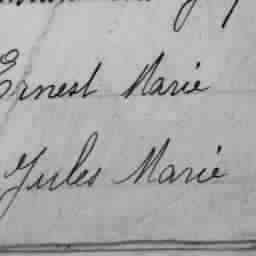 Ernest Marie
Jules Marie